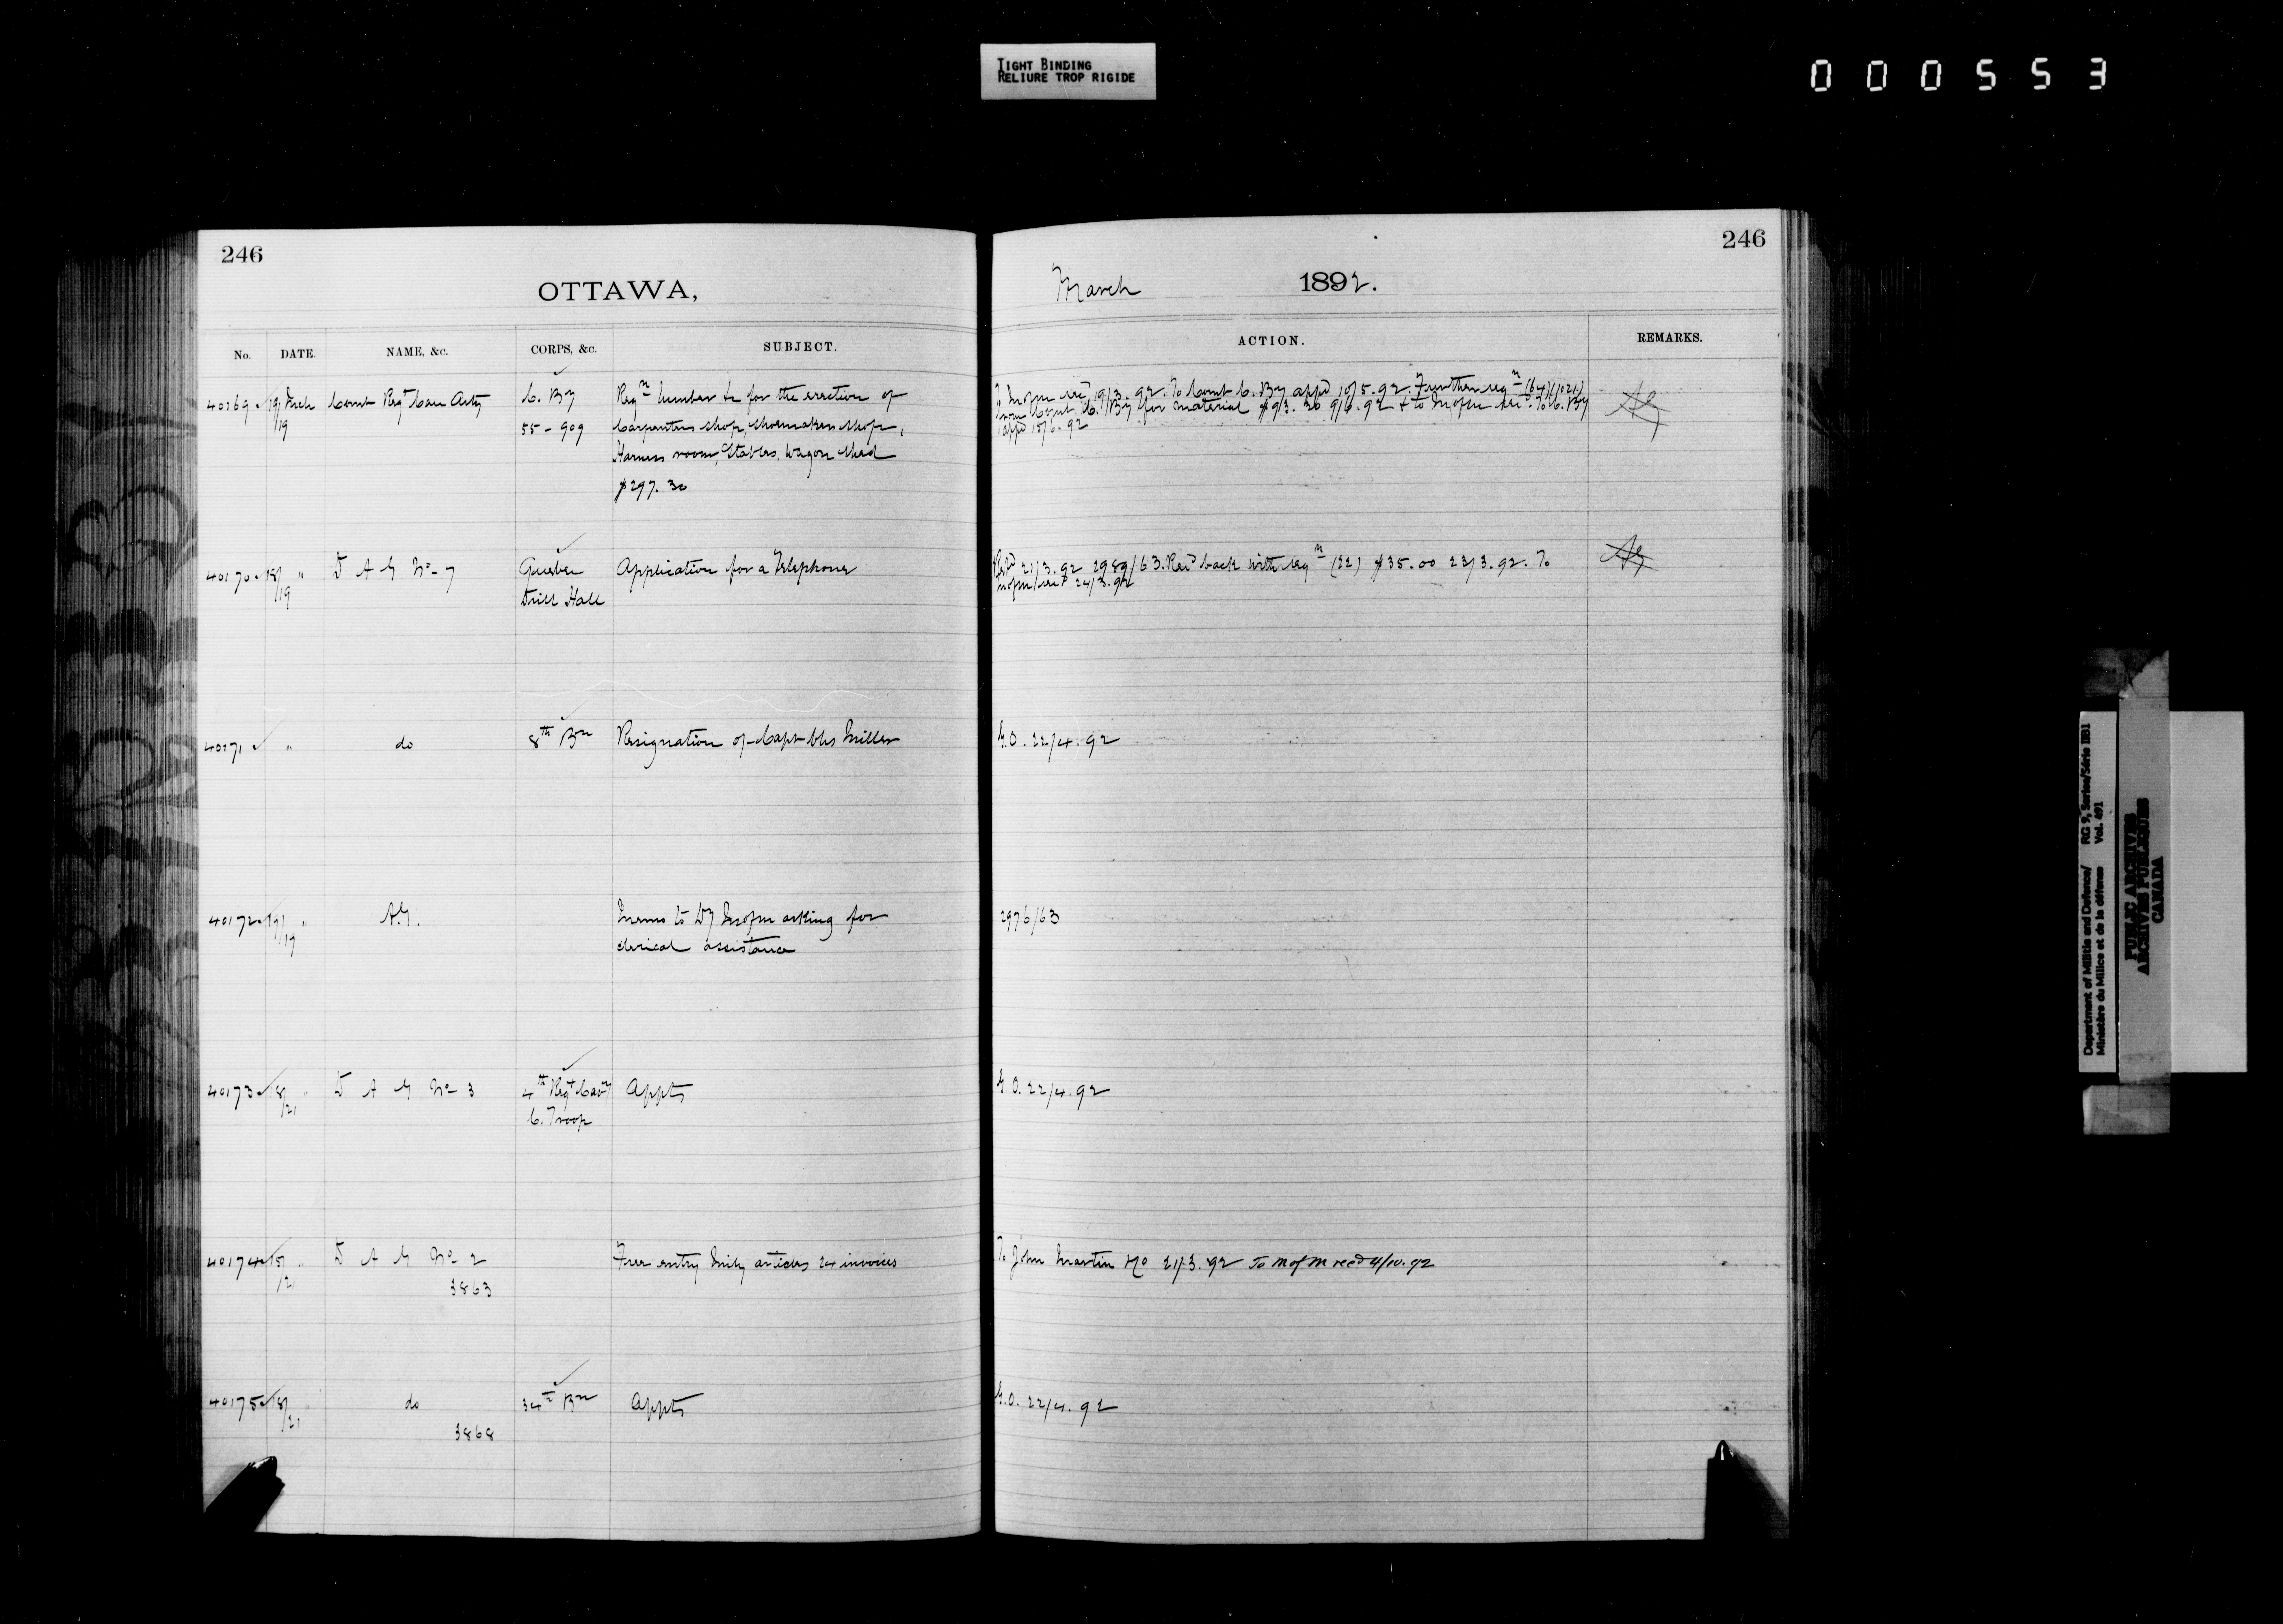 TIGHT BINDING
RELIURE TROP RIGIDE
000553
246
OTTAWA,
No. DATE. NAME, &c. CORPS, &c. SUBJECT.
40169 19/19 Mch Comt Regt Can Arty C. By Reqn lumber &c for the erection of
55-909 Carpenters shop, Shoemakers shop,
Harness room, Stables, Wagon Shed
$297.30
40170 18/19 " D A G No 7 Quebec Application for a Telephone
Drill Hall
40171 " do 8th Bn Resignation of Capt Chs Miller
40172 19/19 " A.G. Memo to asking for
clerical assistance
40173 18/21 " D A G No 3 4th Regt Cavy Appts
C. Troop
40174 15/21 " D A G No 2 Free entry Mily articles 24 invoices
3863
40175 18/21 " do 34th Bn Appts
3868
246
March 1892.
ACTION. REMARKS.
19/3.92. To Comt C. By appd 10/5.92. Further reqn (64)
from Comt C. By for material $93.30 9/6.92 & to To C. By
appd 15/6.92
21/3.92 2989/63. Recd back with reqn (22) $35.00 23/3.92. To
24/3.92
G.O. 22/4.92
2976/63
G.O. 22/4.92
To John Martin &Co 21/3.92 To M of M recd 4/10.92
G.O. 22/4.92
Department of Militia and Defence/ RG 9, Series/Série IIB1
Ministère du Milice et de la défense Vol. 491
PUBLIC ARCHIVES
ARCHIVES PUBLIQUES
CANADA